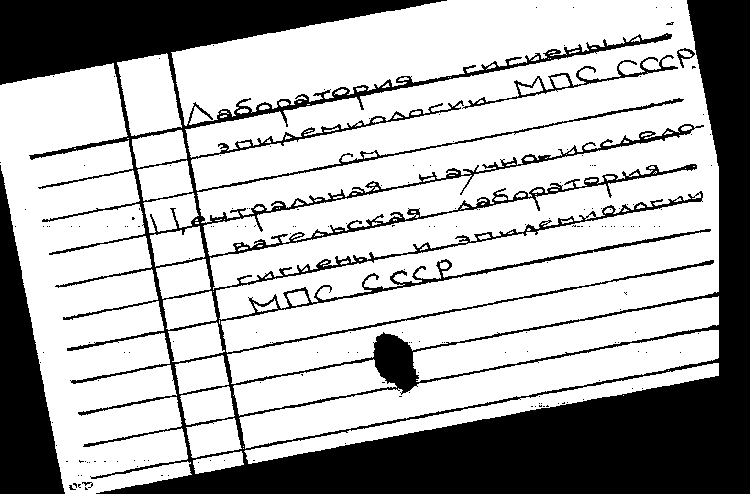 Лаборатория гигиены и
эпидемиологии МПС СССР.
см
Центральная научно-исследо-
вательская лаборатория
гигиены и эпидемиологии
МПС СССР